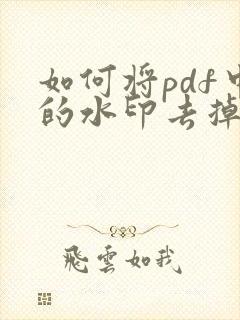 如何将pdf中
的水印去掉
飛雲如我